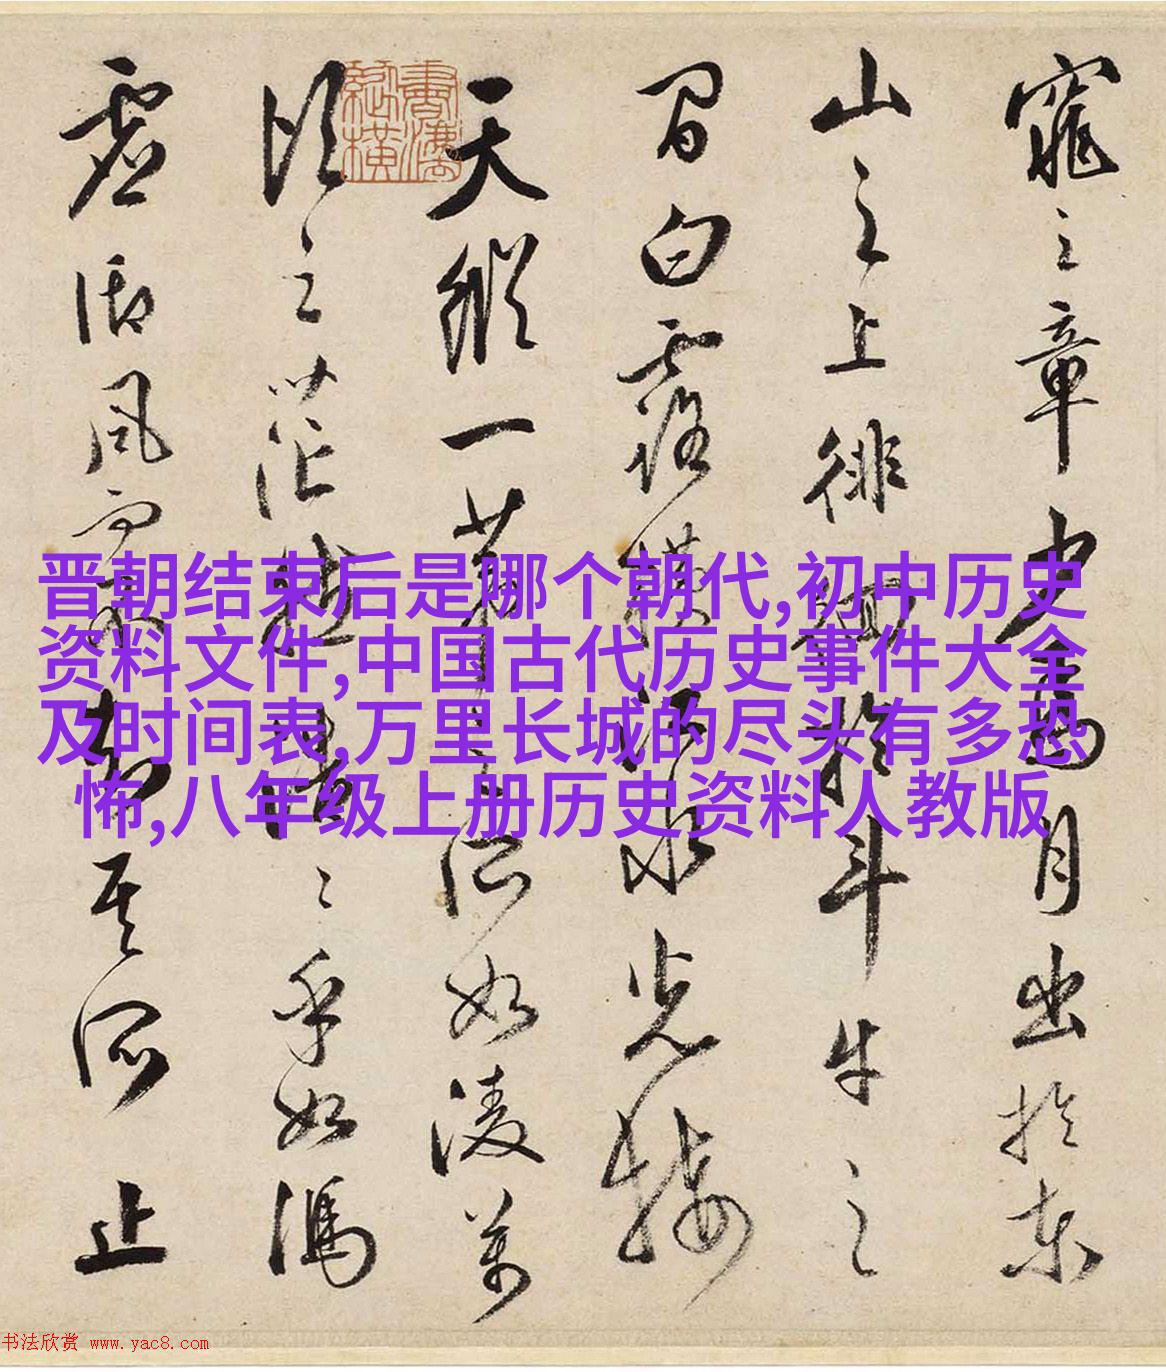 窕之章少焉月出於東
山之上徘徊於斗牛之
間白露橫江水光接
天縱一葦之所如淩萬
頃之茫然浩〻乎如馮
虛御風而不知其所止
晋朝结束后是哪个朝代,初中历史
资料文件,中国古代历史事件大全
及时间表,万里长城的尽头有多恐
怖,八年级上册历史资料人教版
书法欣赏 www.yac8.com